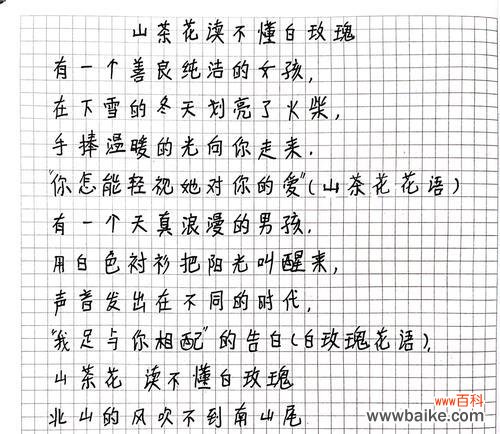 山茶花读不懂白玫瑰
有一个善良纯洁的女孩,
在下雪的冬天划亮了火柴,
手捧温暖的光向你走来.
"你怎能轻视她对你的爱"(山茶花花语)
有一个天真浪漫的男孩,
用白色衬衫把阳光叫醒来,
声音发出在不同的时代,
"我足与你相配"的告白(白玫瑰花语),
山茶花 读不懂白玫瑰
北山的风吹不到南山尾
www百科
www.baike.com